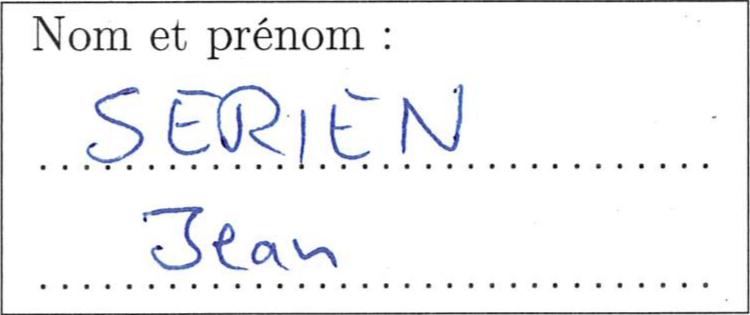 Nom et prénom :
SERIEN
Jean